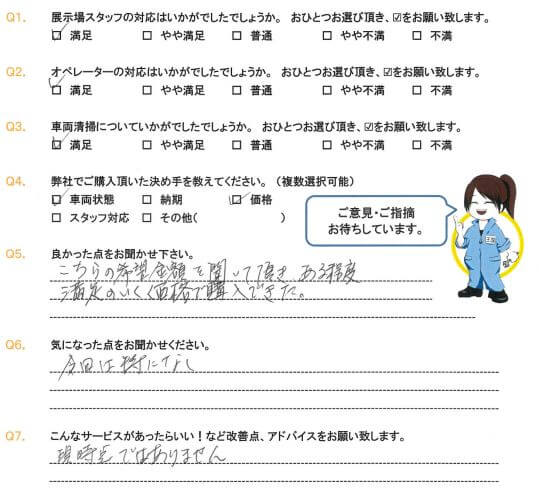 Q1. 展示場スタッフの対応はいかがでしたでしょうか。 おひとつお選び頂き、☑をお願い致します。
☑ 満足 □ やや満足 □ 普通 □ やや不満 □ 不満
Q2. オペレーターの対応はいかがでしたでしょうか。 おひとつお選び頂き、☑をお願い致します。
☑ 満足 □ やや満足 □ 普通 □ やや不満 □ 不満
Q3. 車両清掃についていかがでしたでしょうか。 おひとつお選び頂き、☑をお願い致します。
☑ 満足 □ やや満足 □ 普通 □ やや不満 □ 不満
Q4. 弊社でご購入頂いた決め手を教えてください。（複数選択可能）
☑ 車両状態 □ 納期 ☑ 価格
□ スタッフ対応 □ その他( )
ご意見・ご指摘
お待ちしています。
Q5. 良かった点をお聞かせ下さい。
こちらの希望金額を聞いて頂き ある程度
満足のいく価格で購入できた。
Q6. 気になった点をお聞かせください。
今回は特になし
Q7. こんなサービスがあったらいい！など改善点、アドバイスをお願い致します。
現時点ではありません